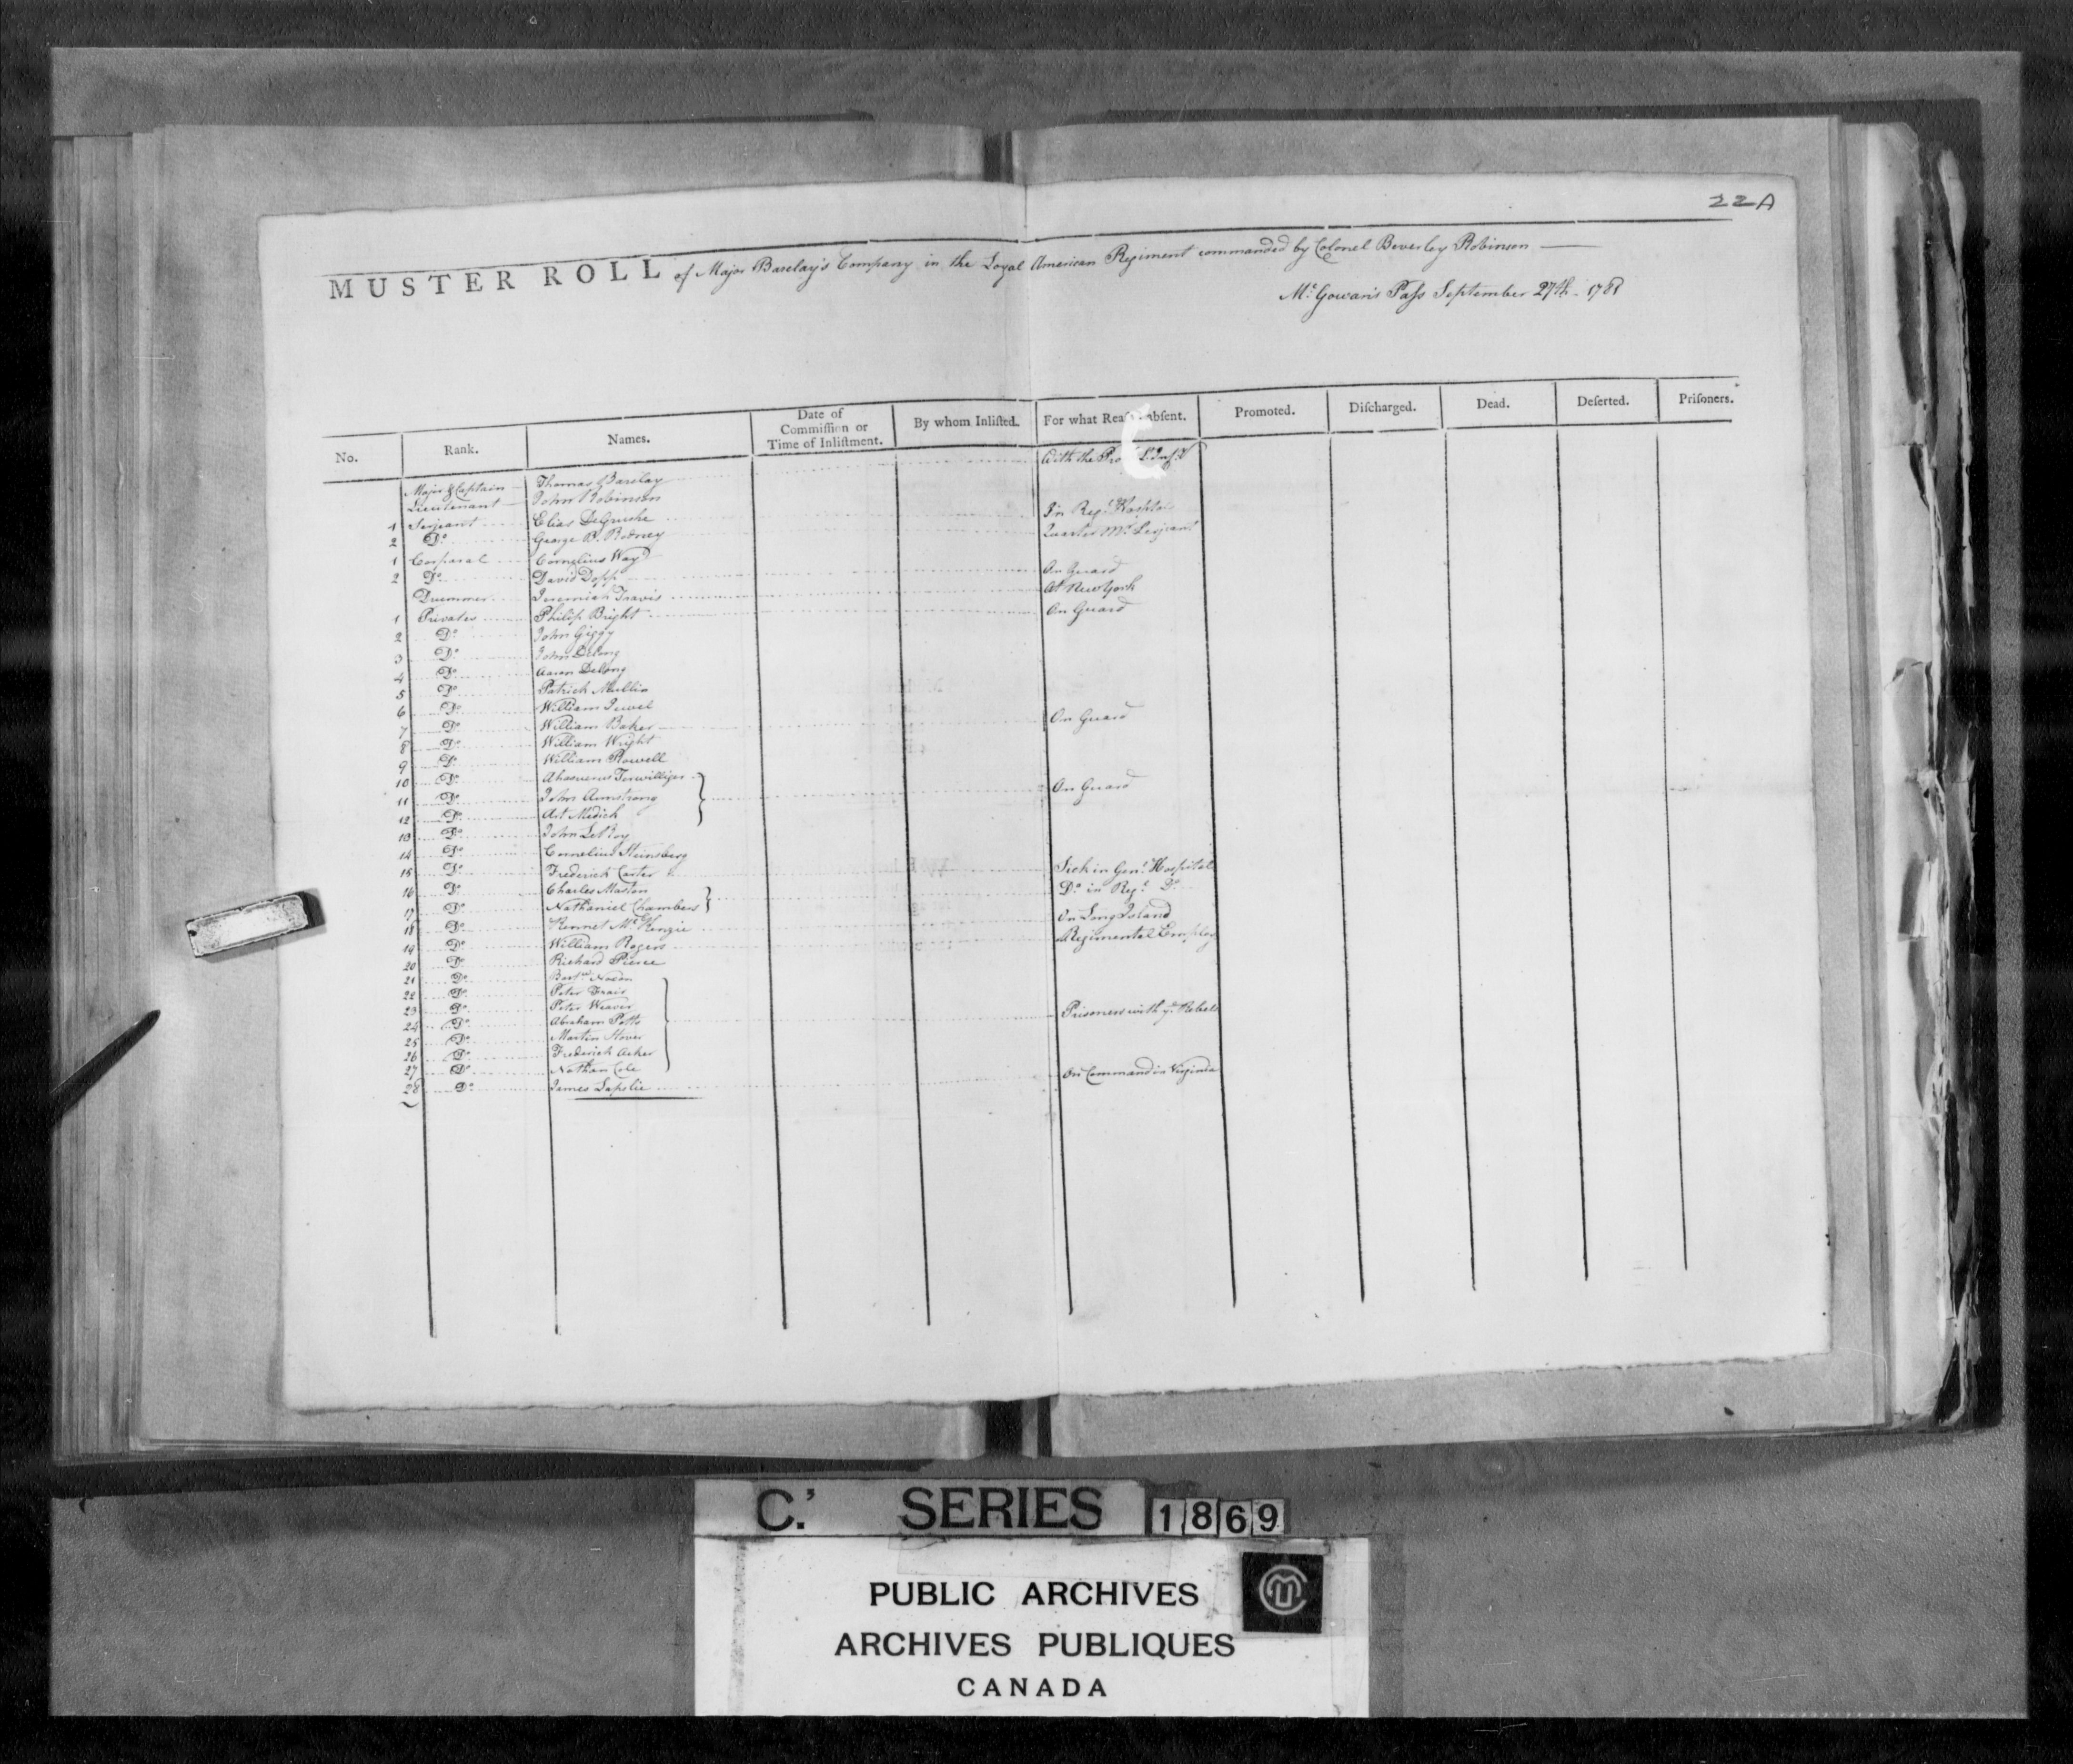 22A
MUSTER ROLL of Major Barclay's Company in the Loyal American Regiment commanded by Colonel Beverley Robinson
Mc Gowan's Pass September 27th 1781
No. Rank. Names. Date of Commiſſion or Time of Inliſtment. By whom Inliſted. For what Reaſon abſent. Promoted. Diſcharged. Dead. Deſerted. Priſoners.
Major & Captain Thomas Barclay With the Pro Lt. Inf.y
Lieutenant John Robinson
1 Serjeant Elias DeGrushe In Reg.l Hospital
2 Do George B. Rodney Quarter Mr Serjeant
1 Corporal Cornelius Wayd
2 Do David Dopp On Guard
Drummer Jeremiah Travis At New York
1 Privates Philip Bright On Guard
2 Do John Giggy
3 Do John Delong
4 Do Aaron Delong
5 Do Patrick Mullin
6 Do William Jewel
7 Do William Baker On Guard
8 Do William Wright
9 Do William Rowell
10 Do Ahasuerus Terwilliger
11 Do John Armstrong On Guard
12 Do Art Medick
13 Do John LeRoy
14 Do Cornelius Steinsberg
15 Do Frederick Carter Sick in Gen.l Hospital
16 Do Charles Maston
17 Do Nathaniel Chambers Do in Reg.l Do
18 Do Kennet Mc Kenzie On Long Island
19 Do William Rogers Regimental Employ
20 Do Richard Pierce
21 Do Bart.w Noxon
22 Do Peter Frair
23 Do Peter Weaver
24 Do Abraham Potts Prisoners with ye Rebels
25 Do Martin Stover
26 Do Frederick Acker
27 Do Nathan Cole
28 Do James Lapslie On Command in Virginia
C.' SERIES 1869
PUBLIC ARCHIVES
ARCHIVES PUBLIQUES
CANADA